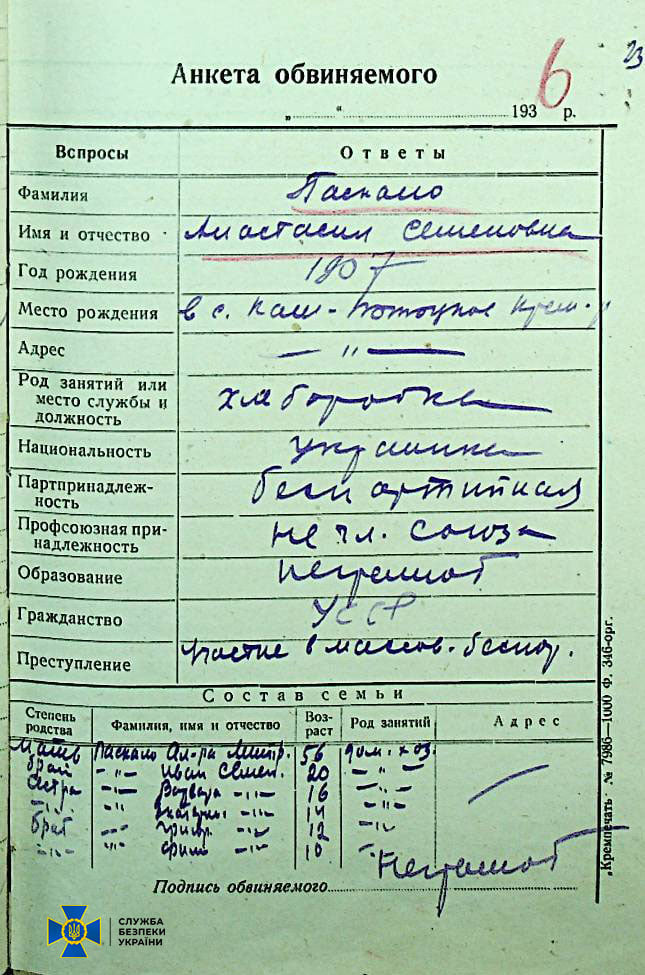 23
Анкета обвиняемого
„ “ 1936 р.
Вспросы Ответы
Фамилия Паскало
Имя и отчество Анастасия Семеновна
Год рождения 1907
Место рождения в с. Кам-Потоцкое Крем. р
Адрес — „ —
Род занятий или
место службы и
должность хлеборобка
Национальность украинка
Партпринадлеж-
ность беспартийная
Профсоюзная при-
надлежность не чл. союза
Образование неграмот
Гражданство УССР
Преступление участие в массов. беспор.
Состав семьи
Степень родства Фамилия, имя и отчество Воз-раст Род занятий Адрес
Мать Паскало Ал-ра Дмитр. 56 дом. хоз.
брат —„— Иван Семен. 20 —„—
Сестра —„— —„— 16 —„—
—„— —„— 14 —„—
брат —„— Григор —„— 12 —„—
—„— —„— —„— 10 —„—
Неграмот
Подпись обвиняемого
„Кремпечать“ № 7986—1000 Ф. 346-орг.
СЛУЖБА
БЕЗПЕКИ
УКРАЇНИ